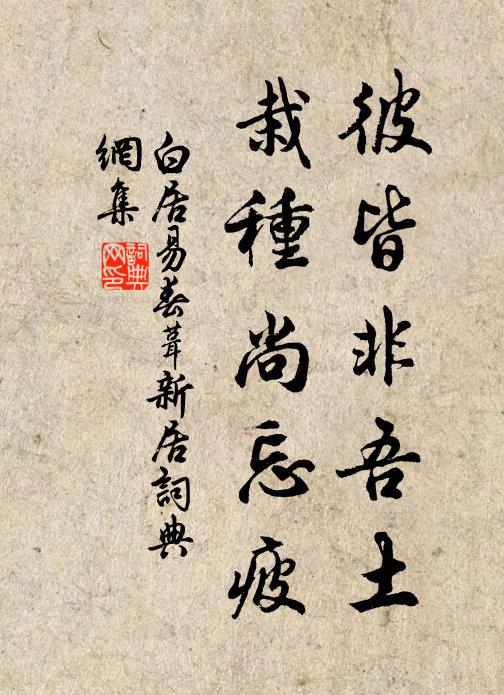 彼皆非吾土
栽種尚忘疲
白居易春葺新居詞典
網集
詞典
网印